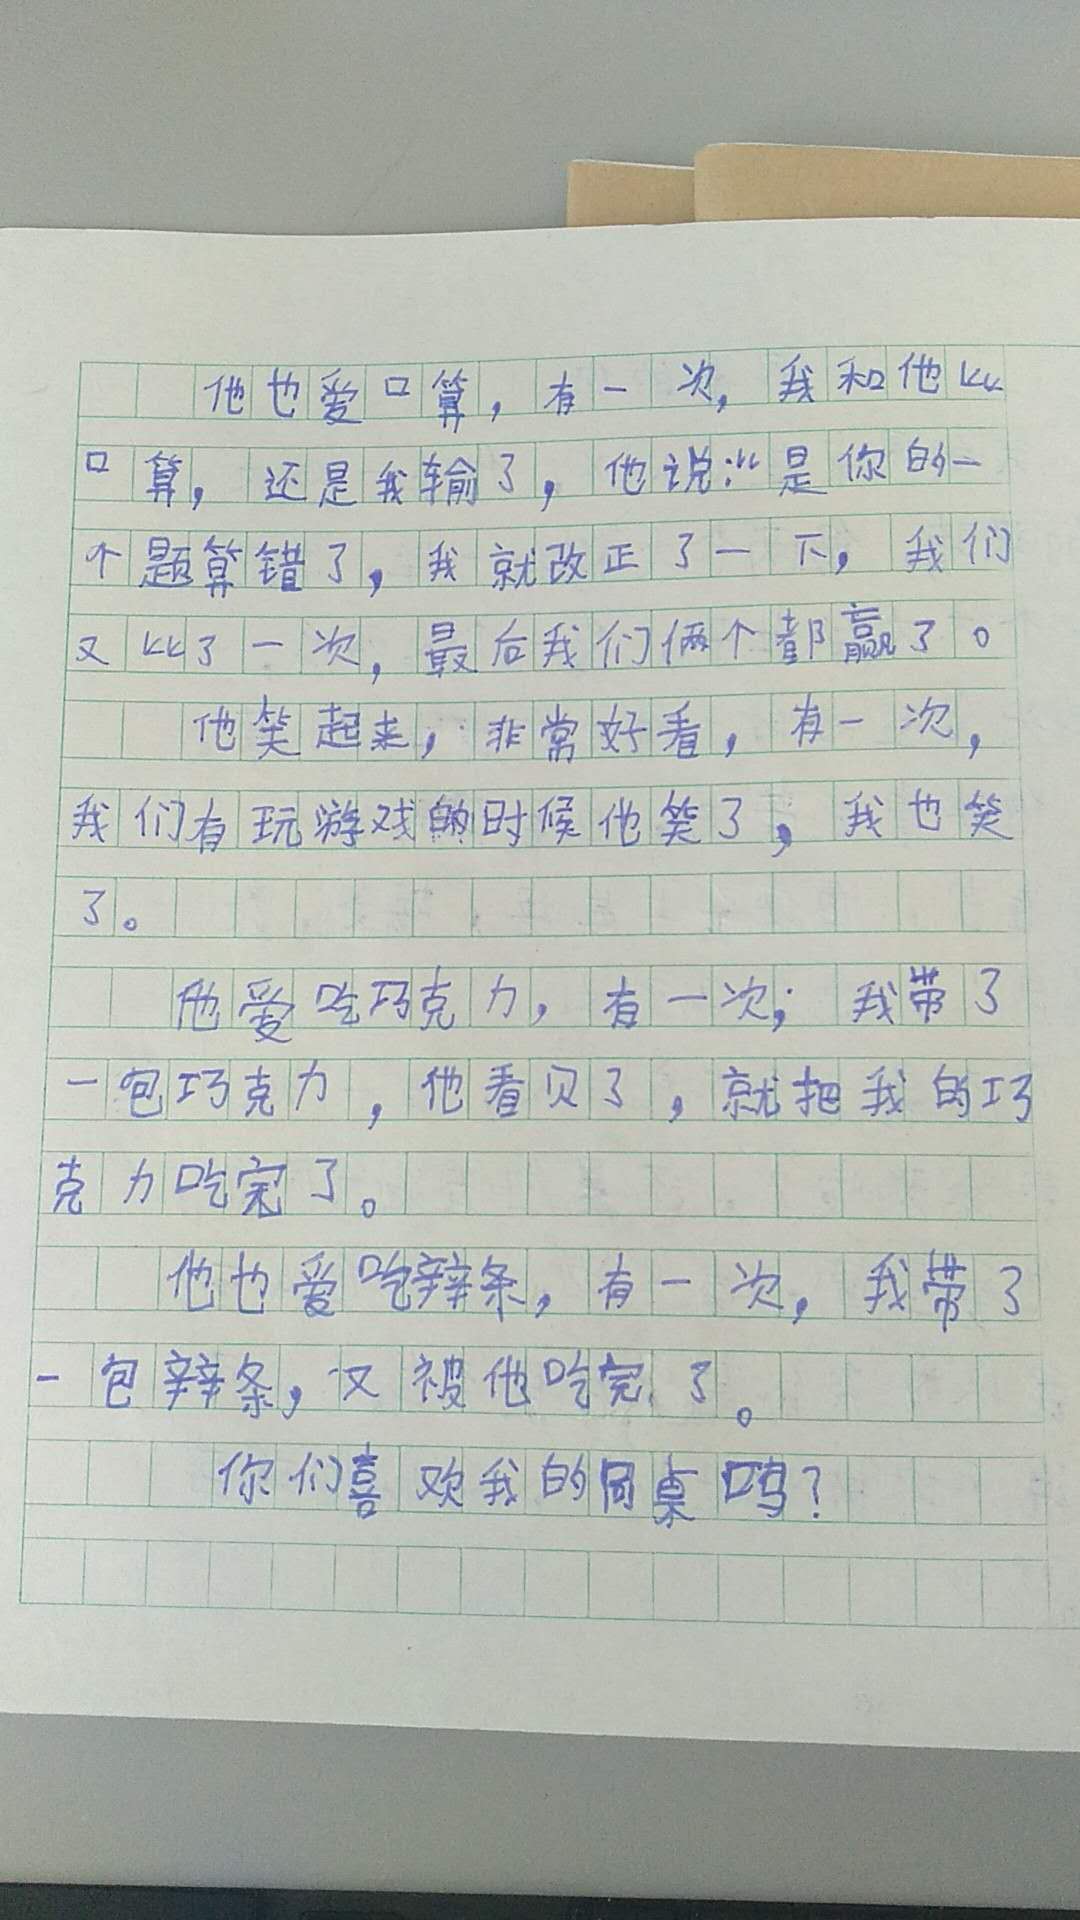 他也爱口算，有一次，我和他kk
口算，还是我输了，他说：“是你的一
个题算错了，我就改正了一下，我们
又kk了一次，最后我们俩个都赢了。
他笑起来，非常好看，有一次，
我们有玩游戏的时候他笑了，我也笑
了。
他爱吃巧克力，有一次；我带了
一包巧克力，他看见了，就把我的巧
克力吃完了。
他也爱吃辣条，有一次，我带了
一包辣条，又被他吃完了。
你们喜欢我的同桌吗？